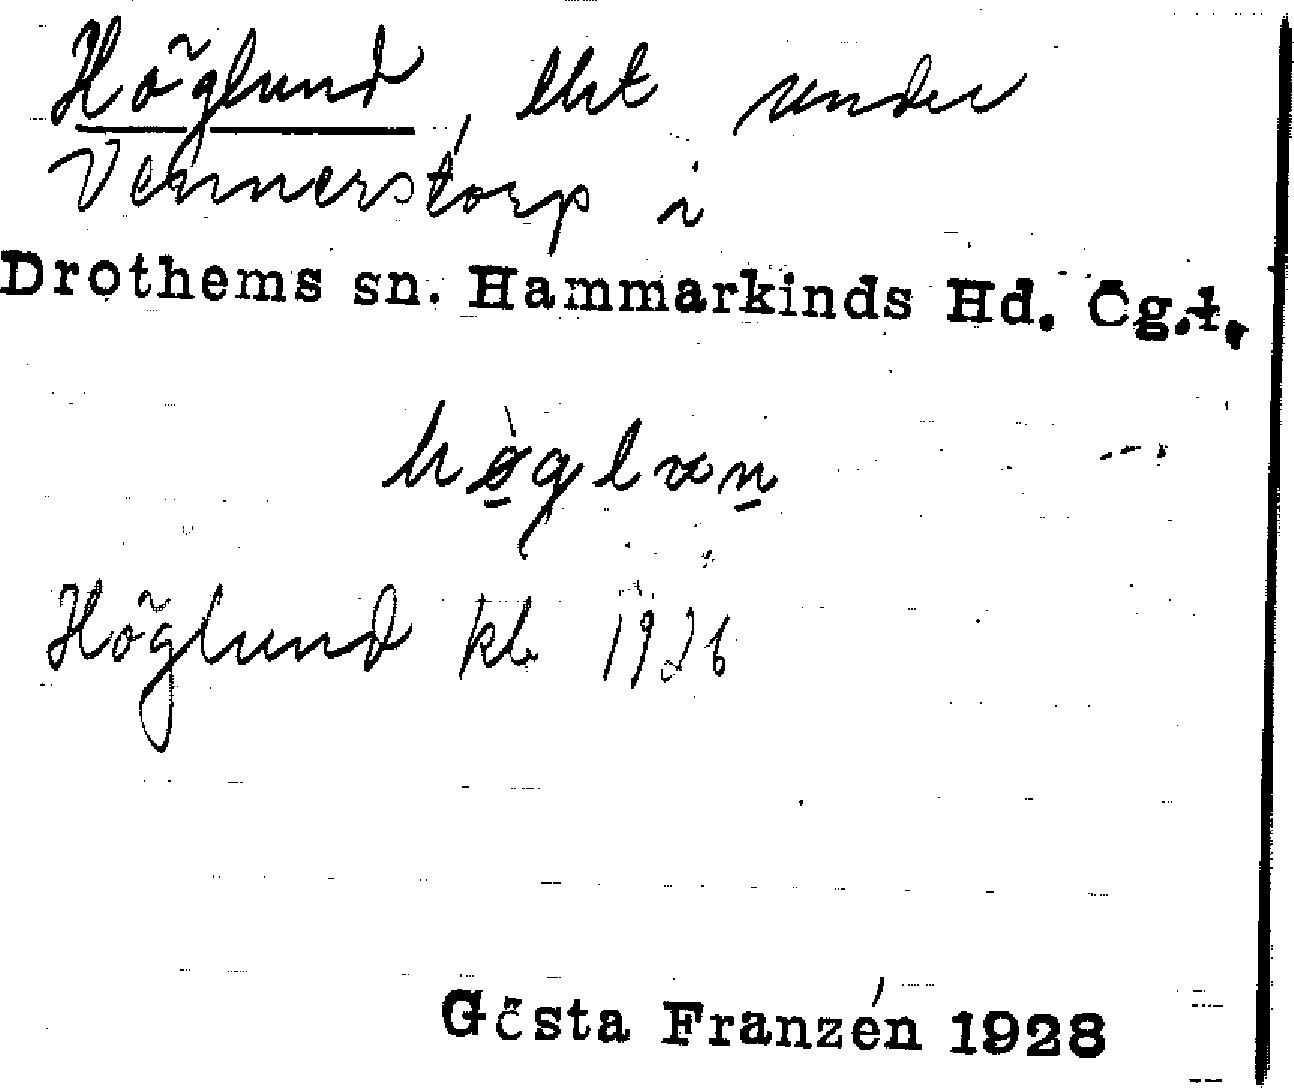 Höglund, lht under
Vennerstorp i
Drothems sn. Hammarkinds Hd. Ög.l.
Höglund kb 1926
Gösta Franzén 1928